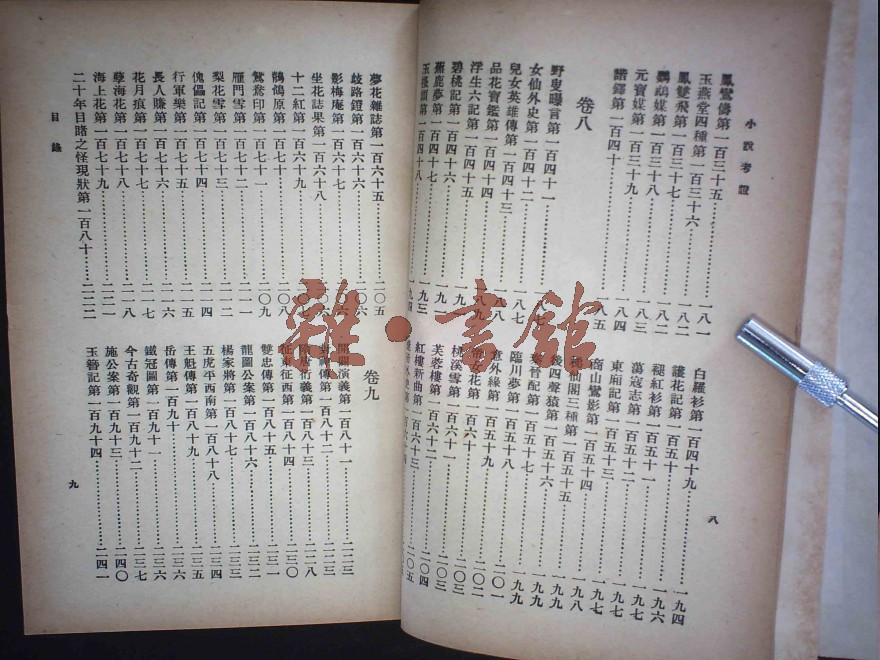 小說考證
鳳鸞儔第一百三十五……一八一
玉燕堂四種第一百三十六……一八一
鳳雙飛第一百三十七……一八二
鸚鵡媒第一百三十八……一八三
元寶媒第一百三十九……一八四
諧鐸第一百四十……一八五
卷八
野叟曝言第一百四十一……一八七
女仙外史第一百四十二……一八七
兒女英雄傳第一百四十三
品花寶鑑第一百四十四……一八九
浮生六記第一百四十五
碧桃記第一百四十六……一九一
蕉鹿夢第一百四十七……一九三
玉搔頭第一百四十八……一九四
白羅衫第一百四十九……一九四
護花記第一百五十……一九六
褪紅衫第一百五十一……一九六
蕩寇志第一百五十二……一九七
東廂記第一百五十三……一九七
崙山鸞影第一百五十四……一九七
仙閣三種第一百五十五……一九八
後四聲猿第一百五十六……一九九
晉配第一百五十七……一九九
臨川夢第一百五十八……一九九
意外緣第一百五十九……二〇一
帝女花第一百六十……二〇二
桃溪雪第一百六十一……二〇三
芙蓉樓第一百六十二……二〇四
紅樓新曲第一百六十三……二〇五
八
夢花雜誌第一百六十五……二〇五
歧路鐙第一百六十六……二〇六
影梅庵第一百六十七……二〇六
坐花誌果第一百六十八……二〇六
十二紅第一百六十九……二〇七
鶺鴒原第一百七十……二〇八
鴛鴦印第一百七十一……二〇九
雁門雪第一百七十二……二一一
梨花雪第一百七十三……二一二
傀儡記第一百七十四……二一四
行軍樂第一百七十五……二一五
長人賺第一百七十六……二一六
花月痕第一百七十七……二一七
孽海花第一百七十八……二一八
海上花第一百七十九……二二一
二十年目睹之怪現狀第一百八十……二二二
卷九
開闢演義第一百八十一……二二三
封神傳第一百八十二……二二三
隋唐衍義第一百八十三……二二八
征東征西第一百八十四……二三〇
雙忠傳第一百八十五……二三一
龍圖公案第一百八十六……二三二
楊家將第一百八十七……二三三
五虎平西南第一百八十八……二三四
王魁傳第一百八十九……二三五
岳傳第一百九十……二三六
鐵冠圖第一百九十一……二三七
今古奇觀第一百九十二……二三七
施公案第一百九十三……二四〇
玉簪記第一百九十四……二四一
目錄
九
雜·書館